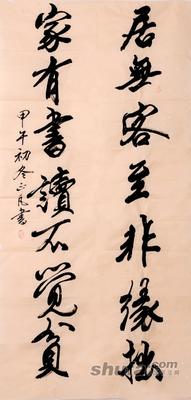 居無客至非緣拙
家有書讀不覺貧
甲午初冬正凡書